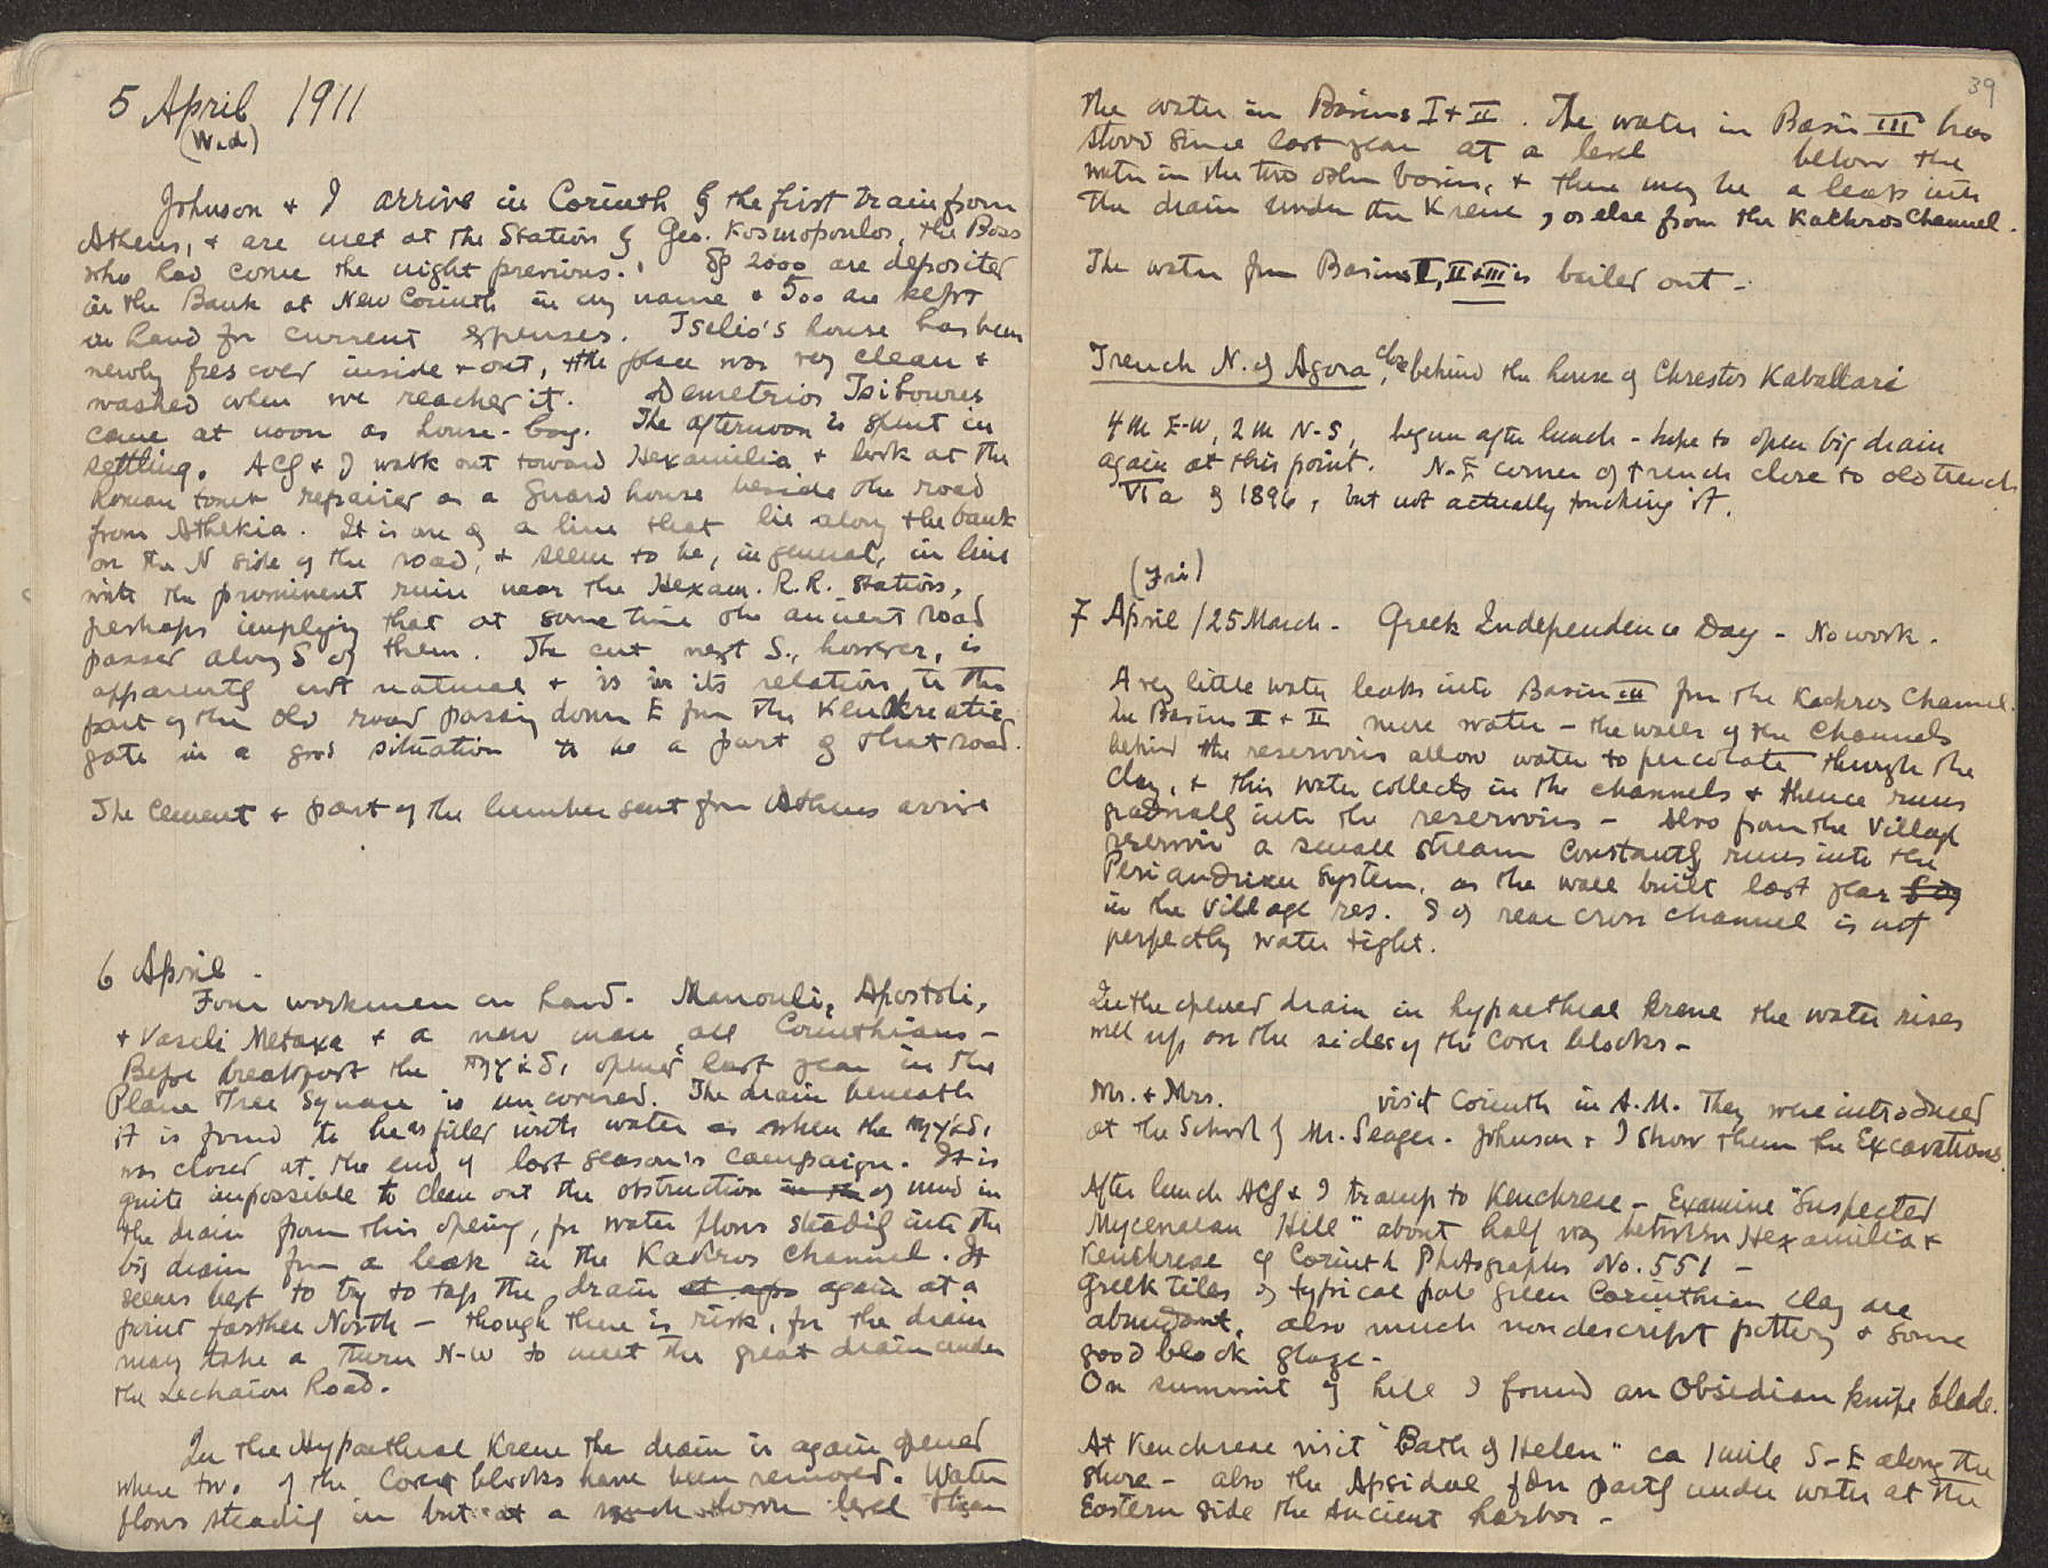 5 April 1911
(Wed)
Johnson + I arrive in Corinth by the first train from
Athens, + are met at the Station by Geo. Kosmopoulos, the Boss
who had come the night previous. 2000 are deposited
in the Bank at New Corinth in my name + 500 are kept
in hand for current expenses. Tselio's house has been
newly frescoed inside + out, + the place was very clean +
washed when we reached it. Demetrios Tsibouris
came at noon as house-boy. The afternoon is spent in
settling. ACJ + I walk out toward Hexamilia + look at the
Roman tomb repaired as a guard house beside the road
from Athikia. It is one of a line that lie along the bank
on the N side of the road, + seem to be, in general, in line
with the prominent ruin near the Hexam. R.R. station,
perhaps implying that at some time the ancient road
passed along S of them. The cut next S., however, is
apparently not natural + is in its relation to the
part of the old road passing down E from the Kenchreatic
gate in a good situation to be a part of that road.
The cement + part of the lumber sent from Athens arrive
6 April -
Four workmen on hand - Manouli, Apostoli,
+ Vaseli Metaxa + a new man, all Corinthians -
Before breakfast the πηγάδι opened last year in the
Plane Tree Square is uncovered. The drain beneath
it is found to be as filled with water as when the πηγάδι
was closed at the end of last season's campaign. It is
quite impossible to clean out the obstruction in the of mud in
the drain from this opening, for water flows steadily into the
big drain from a leak in the Kakros Channel. It
seems best to try to tap the drain at apo again at a
point farther North - though there is risk, for the drain
may take a turn N-W to meet the great drain under
the Lechaion Road.
In the Hypaethral Krene the drain is again opened
where two of the cover blocks have been removed. Water
flows steadily in but at a much lower level than
39
the water in Basins I + II. The water in Basin III has
stood since last year at a level below the
water in the two other basins, + there may be a leak into
the drain under the Krene, or else from the Kakros Channel.
The water from Basins I, II + III is bailed out -
Trench N. of Agora, close behind the house of Chrestos Kaballari
4 m E-W, 2 m N-S, begun after lunch - hope to open big drain
again at this point. N-E corner of trench close to old trench
VI a of 1896, but not actually touching it.
(Fri)
7 April / 25 March - Greek Independence Day - No work.
A very little water leaks into Basin III from the Kakros Channel.
In Basins I + II more water - the walls of the Channels
behind the reservoirs allow water to percolate through the
clay, + this water collects in the channels + thence runs
gradually into the reservoirs - Also from the Village
reservoir a small stream constantly runs into the
Periandrian System, as the wall built last year S of
in the Village res. S of rear cross channel is not
perfectly water tight.
In the opened drain in hypaethral krene the water rises
well up on the sides of the cover blocks -
Mr. + Mrs. visit Corinth in A.M. They were introduced
at the School by Mr. Seager. Johnson + I show them the Excavations.
After lunch ACJ + I tramp to Kenchreae - Examine "Suspected
Mycenaean Hill" about half way between Hexamilia +
Kenchreae cf Corinth Photographs No. 551 -
Greek tiles of typical pale green Corinthian clay are
abundant, also much nondescript pottery + some
good black glaze -
On summit of hill I found an Obsidian knife blade.
At Kenchreae visit "Bath of Helen" ca 1 mile S-E along the
shore - also the Apsidal fdn partly under water at the
Eastern side the Ancient harbor -